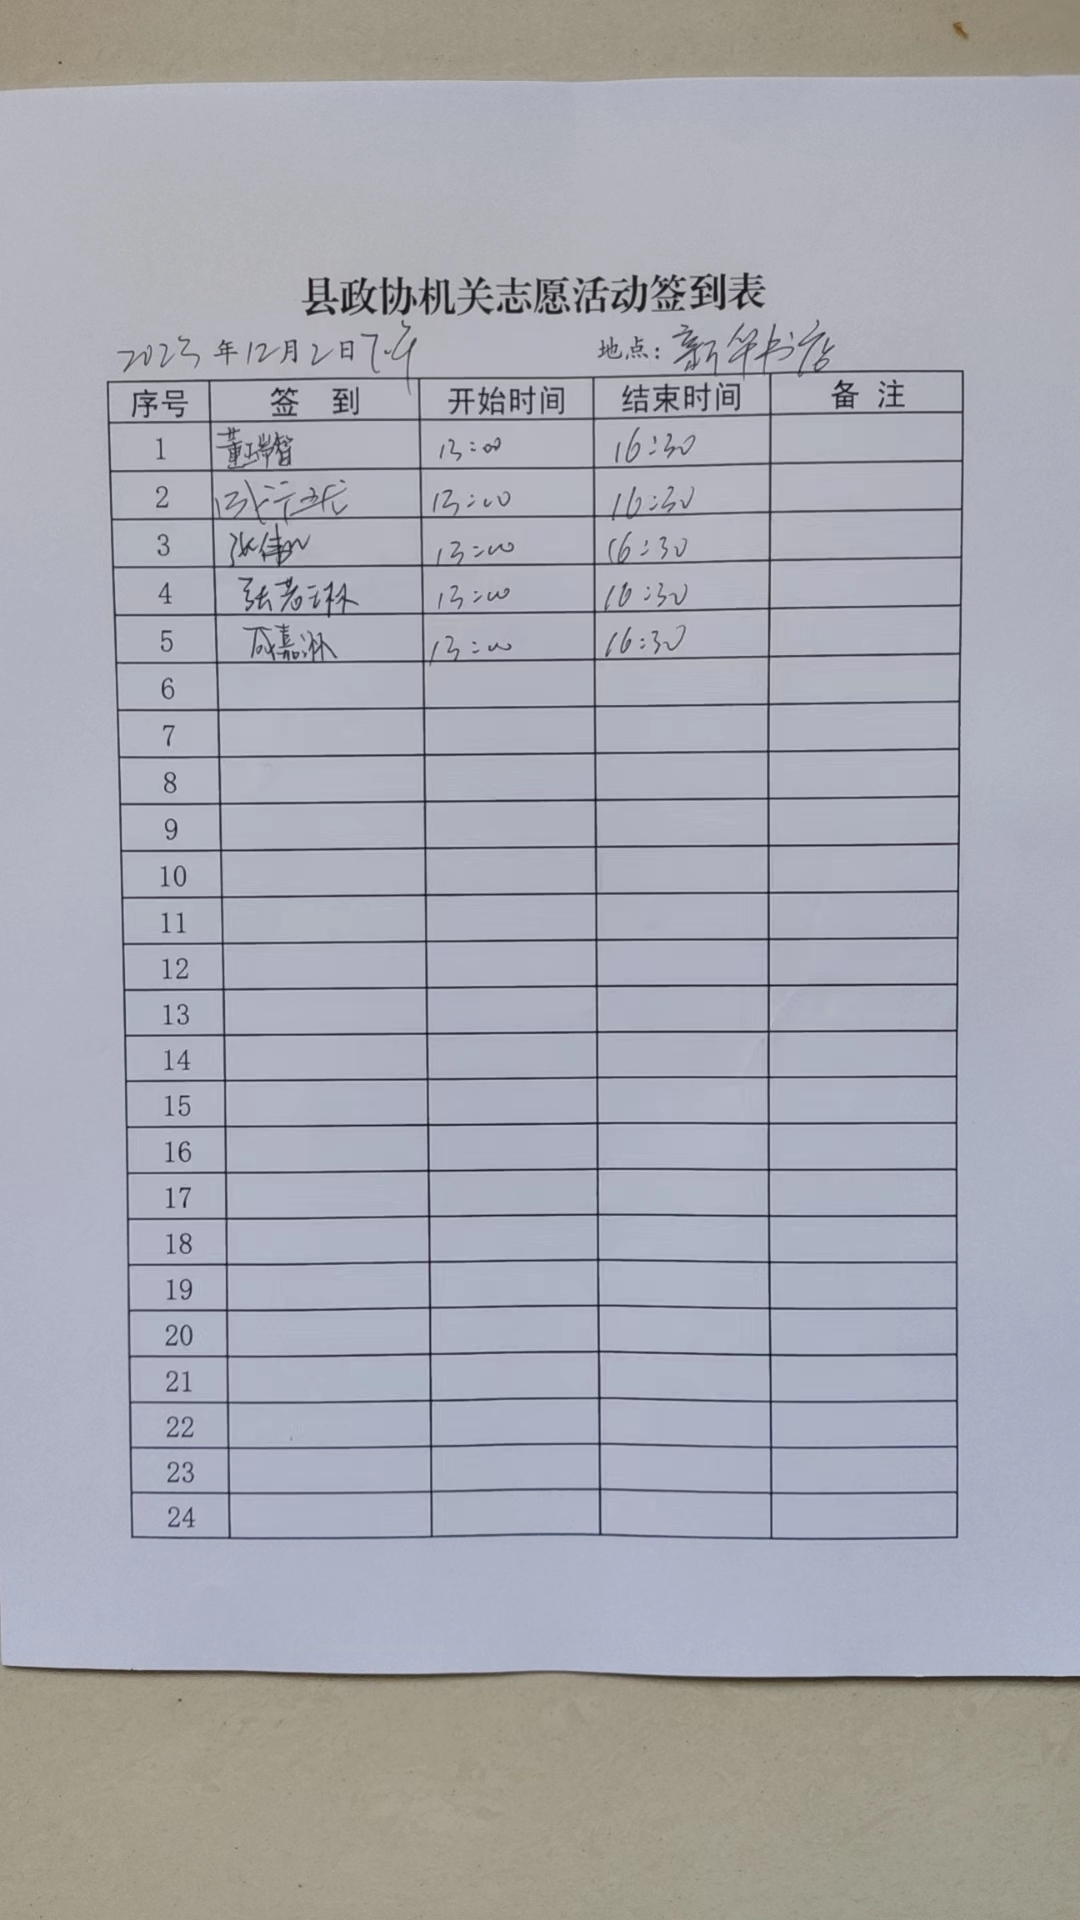 县政协机关志愿活动签到表
2023年12月2日下午 地点：新华书店
序号 签 到 开始时间 结束时间 备 注
1 董 13:00 16:30
2 13:00 16:30
3 张伟 13:00 16:30
4 张若琳 13:00 16:30
5 嘉 13:00 16:30
6
7
8
9
10
11
12
13
14
15
16
17
18
19
20
21
22
23
24